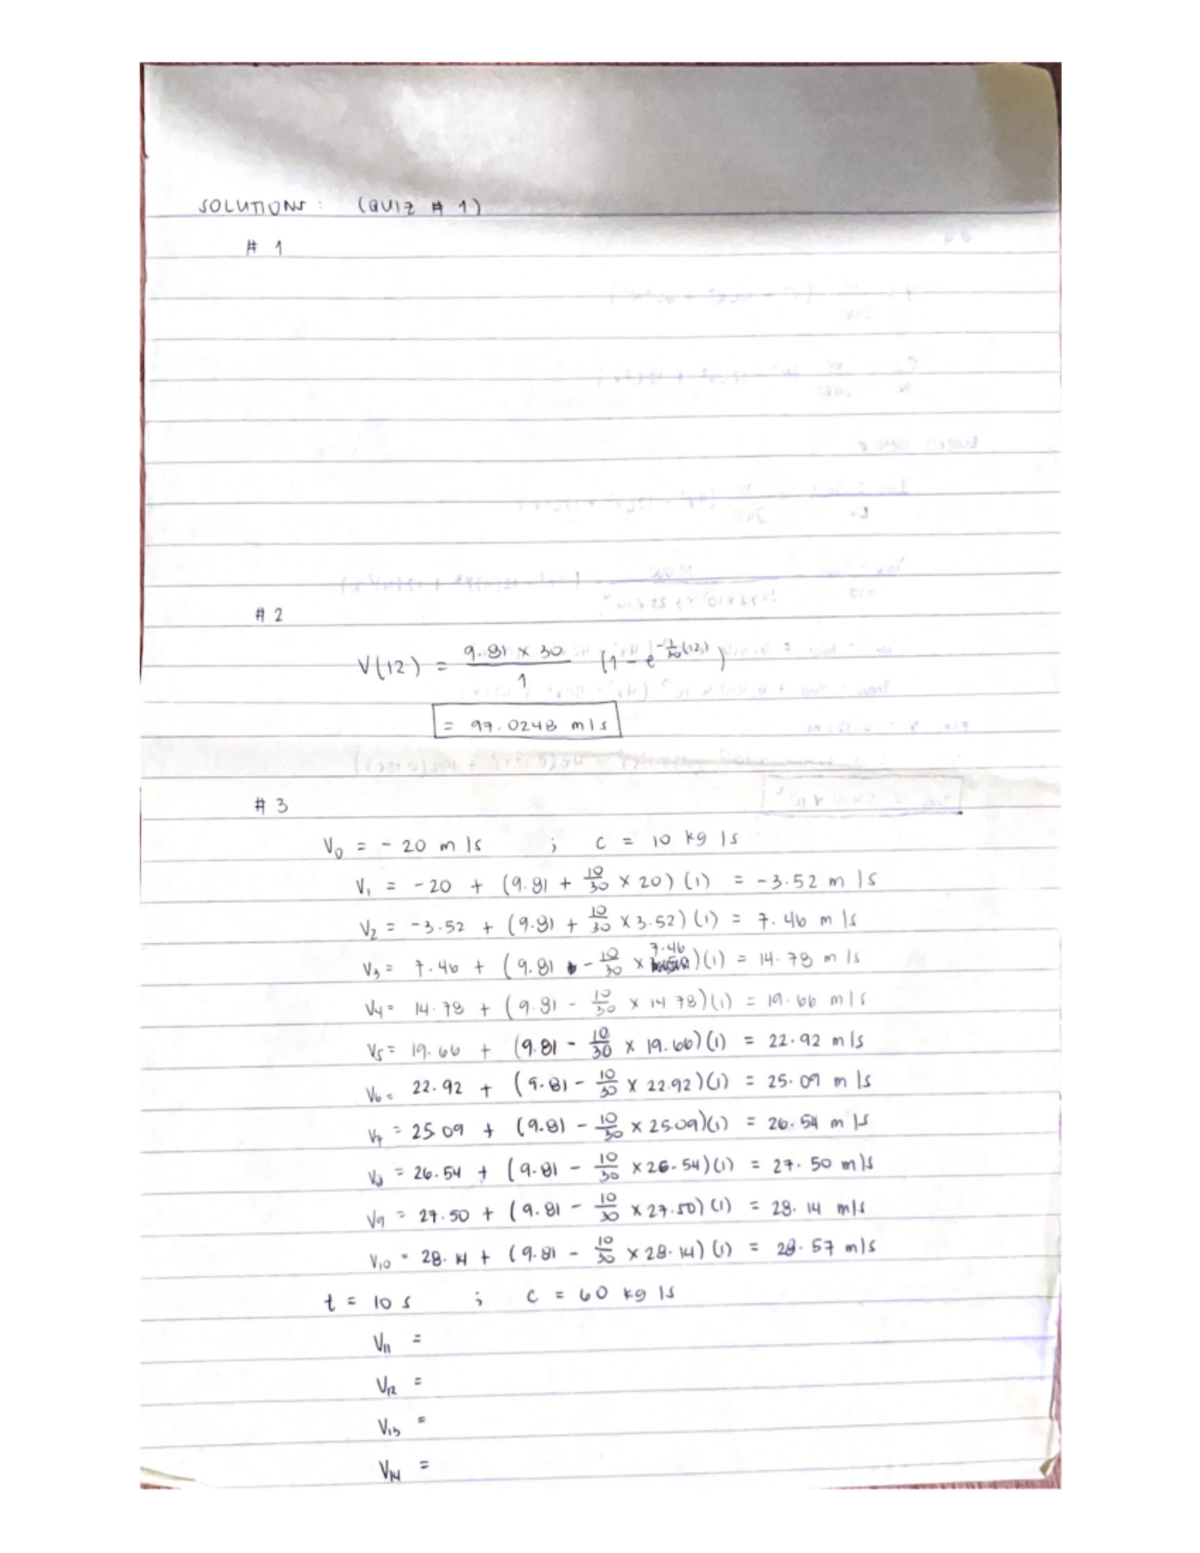 SOLUTIONS : (QUIZ # 1)
# 1
# 2
V(12) = 9.81 x 30 / 1 (1 - e^-1/30(12))
= 97.0248 m/s
# 3
V0 = - 20 m/s ; c = 10 kg/s
V1 = - 20 + (9.81 + 10/30 x 20)(1) = -3.52 m/s
V2 = -3.52 + (9.81 + 10/30 x 3.52)(1) = 7.46 m/s
V3 = 7.46 + (9.81 - 10/30 x 7.46)(1) = 14.78 m/s
V4 = 14.78 + (9.81 - 10/30 x 14.78)(1) = 19.66 m/s
V5 = 19.66 + (9.81 - 10/30 x 19.66)(1) = 22.92 m/s
V6 = 22.92 + (9.81 - 10/30 x 22.92)(1) = 25.09 m/s
V7 = 25.09 + (9.81 - 10/30 x 25.09)(1) = 26.54 m/s
V8 = 26.54 + (9.81 - 10/30 x 26.54)(1) = 27.50 m/s
V9 = 27.50 + (9.81 - 10/30 x 27.50)(1) = 28.14 m/s
V10 = 28.14 + (9.81 - 10/30 x 28.14)(1) = 28.57 m/s
t = 10 s ; c = 60 kg/s
V11 =
V12 =
V13 =
V14 =